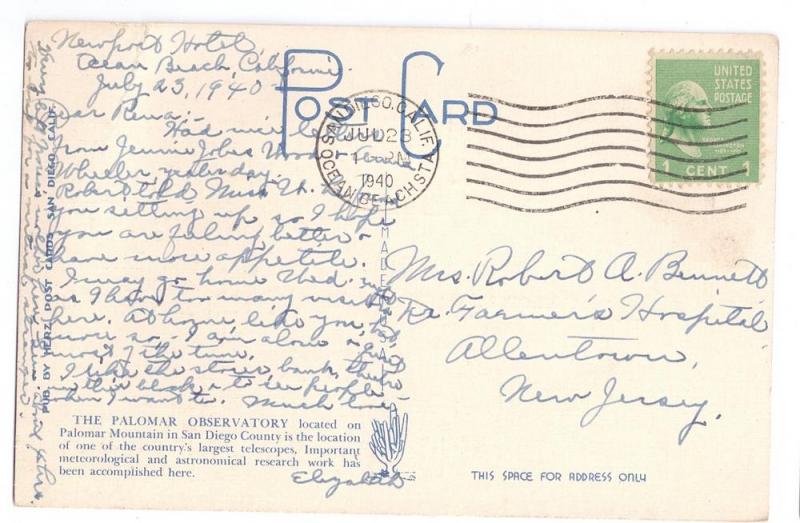 Newport Hotel,
Ocean Beach, California
July 23, 1940
Dear Rena:
Had nice letters
from Jennie Jobes Wood +
Wheeler yesterday.
Robert told Miss W.
you sitting up so I hope
you are feeling better +
have more appetite.
I may go home Wed.
as I have too many visitors
here. At home like you, but
more so, I am alone +
most of the time.
I like the stores, bank, theatre
in this block + to see people
when I want to. Much love
Elizabeth
POST CARD
SAN DIEGO, CALIF.
JUL 23
1940
OCEAN BEACH STA.
UNITED
STATES
POSTAGE
1 CENT 1
Mrs. Robert A. Bennett
Farmer's Hospital,
Allentown,
New Jersey.
PUB. BY HERZ POST CARDS SAN DIEGO, CALIF.
MADE
THE PALOMAR OBSERVATORY located on
Palomar Mountain in San Diego County is the location
of one of the country's largest telescopes. Important
meteorological and astronomical research work has
been accomplished here.
THIS SPACE FOR ADDRESS ONLY